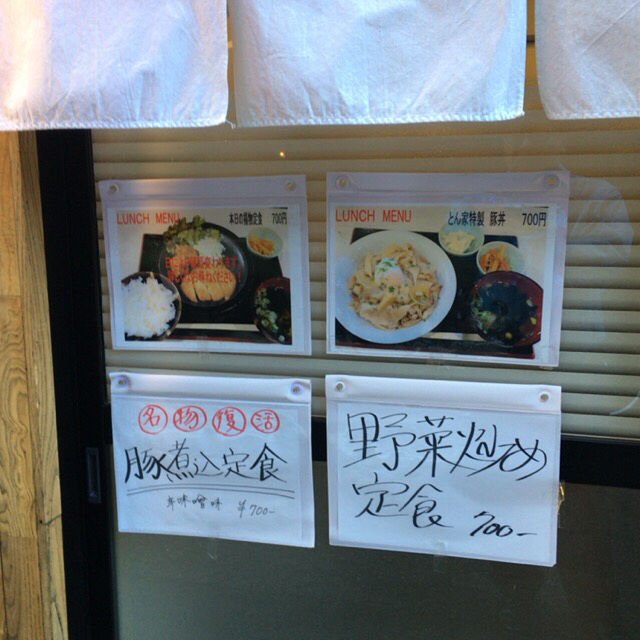 LUNCH MENU 本日の揚物定食 700円
LUNCH MENU とん家特製 豚丼 700円
名物復活
豚煮込定食
辛味噌味 ¥700-
野菜炒め
定食 700-